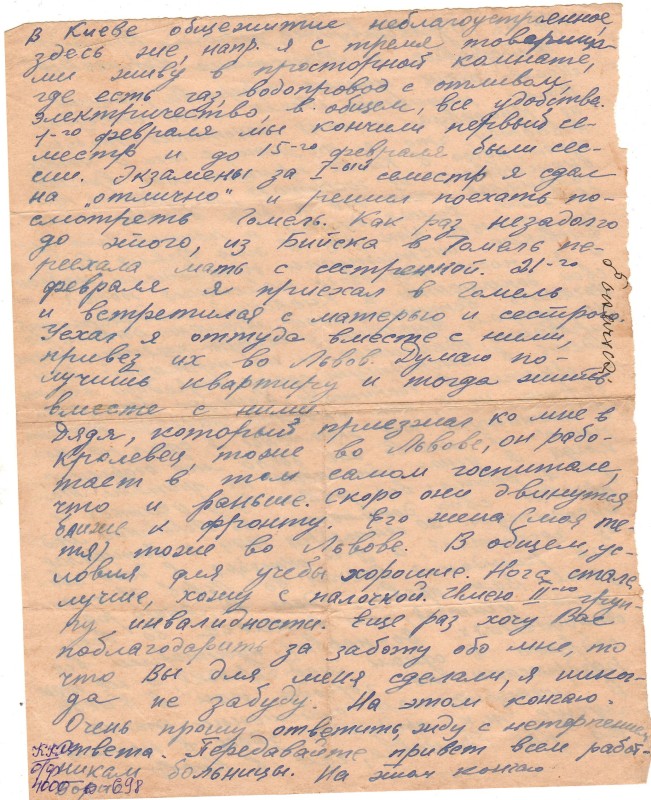 В Киеве общежитие неблагоустроенное,
здесь же, напр. я с тремя товарища-
ми живу в просторной комнате,
где есть газ, водопровод с отливом,
электричество, в общем, все удобства.
1-го февраля мы кончили первый се-
местр и до 15-го февраля были сес-
сии. Экзамены за I-ый семестр я сдал
на „отлично" и решил поехать по-
смотреть Гомель. Как раз незадолго
до этого, из Бийска в Гомель пе-
реехала мать с сестренкой. 21-го
февраля я приехал в Гомель
и встретился с матерью и сестрой.
Уехал я оттуда вместе с ними,
привез их во Львов. Думаю по-
лучить квартиру и тогда жить
вместе с ними.
Дядя, который приезжал ко мне в
Кролевец, тоже во Львове, он рабо-
тает в том самом госпитале,
что и раньше. Скоро они двинутся
ближе к фронту. Его жена (моя те-
тя) тоже во Львове. В общем, ус-
ловия для учебы хорошие. Нога стала
лучше, хожу с палочкой. Имею II-ую груп-
пу инвалидности. Еще раз хочу Вас
поблагодарить за заботу обо мне, то
что Вы для меня сделали, я никог-
да не забуду. На этом кончаю.
Очень прошу ответить, жду с нетерпением
ответа. Передавайте привет всем работ-
никам больницы. На этом кончаю
ККМ
698